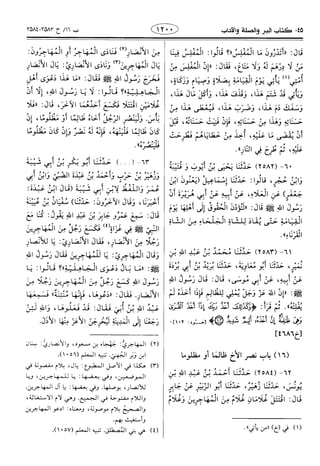 ٤٥- كتاب البر والصلة والآداب
١٢٠٠
ب ١٦/ ح ٢٥٨٢-٢٥٨٤
قال: «أتدرون ما المفلس؟» قالوا: المفلس فينا
من لا درهم له ولا متاع، فقال: «إن المفلس من
أمتي(١) يأتي يوم القيامة بصلاة وصيام وزكاة،
ويأتي قد شتم هذا، وقذف هذا، وأكل مال هذا،
وسفك دم هذا، وضرب هذا، فيعطى هذا من
حسناته وهذا من حسناته، فإن فنيت حسناته، قبل
أن يقضى ما عليه، أخذ من خطاياهم فطرحت
عليه، ثم طرح في النار».
٦٠- (٢٥٨٢) حدثنا يحيى بن أيوب و قتيبة
وابن حجر، قالوا: حدثنا إسماعيل يعنون ابن
جعفر، عن العلاء، عن أبيه، عن أبي هريرة أن
رسول الله ﷺ قال: «لتؤدن الحقوق إلى أهلها يوم
القيامة حتى يقاد للشاة الجلحاء من الشاة
القرناء».
٦١- (٢٥٨٣) حدثنا محمد بن عبد الله بن
نمير، حدثنا أبو معاوية، حدثنا بريد بن أبي بردة
عن أبيه، عن أبي موسى، قال: قال رسول الله
ﷺ: «إن الله عز وجل يملي للظالم فإذا أخذه لم
يفلته، ثم قرأ: ﴿وكذلك أخذ ربك إذا أخذ القرى
وهي ظالمة إن أخذه أليم شديد﴾ [هود: ١٠٢].
[خ ٤٦٨٦]
(١٦) باب نصر الأخ ظالما أو مظلوما
٦٢- (٢٥٨٤) حدثنا أحمد بن عبد الله بن
يونس، حدثنا زهير، حدثنا أبو الزبير عن جابر
قال: اقتتل غلامان غلام من المهاجرين وغلام
(١) في (خ) «من يأتي».
من الأنصار(٢) فنادى المهاجر أو المهاجرون:
يال المهاجرين(٣) ونادى الأنصاري: يال الأنصار
فخرج رسول الله ﷺ فقال: «ما هذا دعوى أهل
الجاهلية؟» قالوا: لا يا رسول الله! إلا أن
غلامين اقتتلا فكسع أحدهما الآخر، قال: «فلا
بأس. ولينصر الرجل أخاه ظالما أو مظلوما إن
كان ظالما فلينهه، فإنه له نصر وإن كان مظلوما
فلينصره».
٦٣- (...) حدثنا أبو بكر بن أبي شيبة
وزهير بن حرب وأحمد بن عبدة الضبي وابن أبي
عمر واللفظ لابن أبي شيبة (قال ابن عبدة:
أخبرنا، وقال الآخرون: حدثنا) سفيان بن عيينة
قال: سمع عمرو جابر بن عبد الله يقول: كنا مع
النبي ﷺ في غزاة(٤) فكسع رجل من المهاجرين
رجلا من الأنصار، فقال الأنصاري: يا للأنصار
وقال المهاجري: يا للمهاجرين فقال رسول الله
ﷺ: «ما بال دعوى الجاهلية؟» قالوا: يا
رسول الله كسع رجل من المهاجرين رجلا من
الأنصار. فقال: «دعوها، فإنها منتنة» فسمعها
عبد الله بن أبي فقال: قد فعلوها، والله لئن
رجعنا إلى المدينة ليخرجن الأعز منها الأذل.
(٢) المهاجري: جهجاه بن مسعود، والأنصاري: سنان
ابن وبر الجهني. تنبيه المعلم (١٠٥٦).
(٤) هي بني المصطلق. تنبيه المعلم (١٠٥٧).